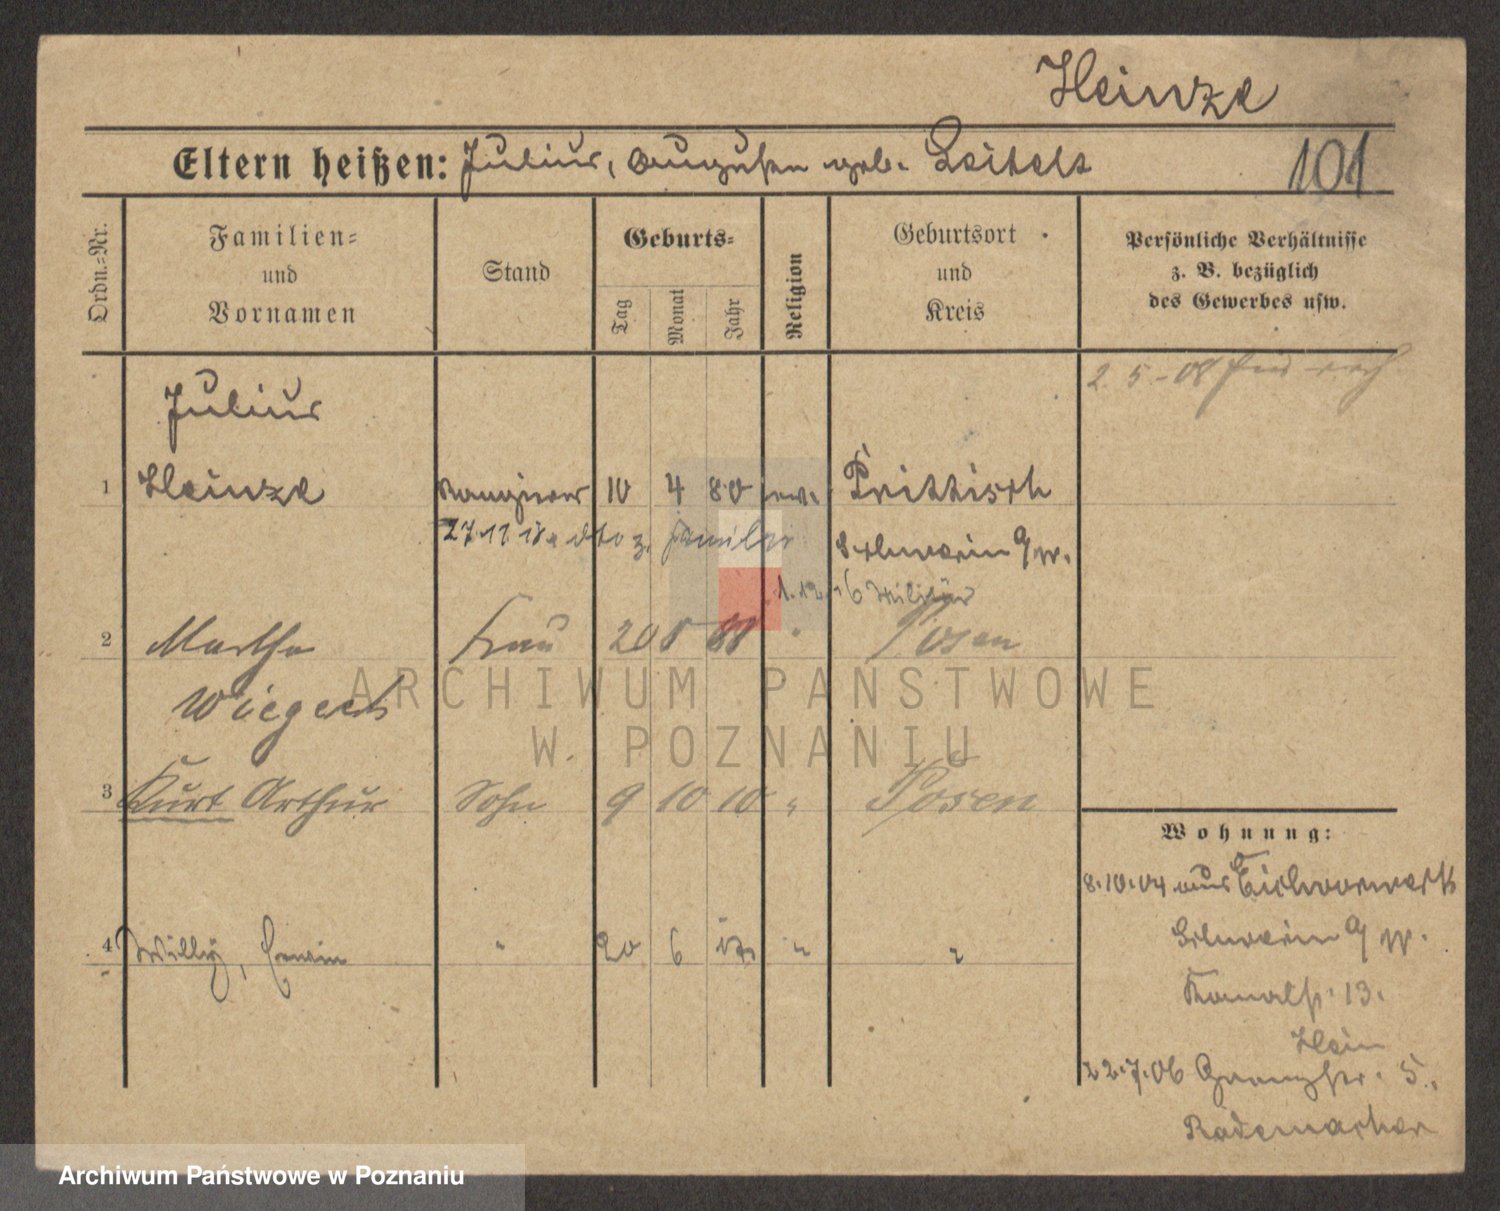 Heinze
Eltern heißen: Julius, Augusten geb. Leitelt
101
Ordn.-Nr.
Familien-
und
Vornamen
Stand
Geburts-
Tag
Monat
Jahr
Religion
Geburtsort
und
Kreis
Persönliche Verhältnisse
z. B. bezüglich
des Gewerbes usw.
2. 5. 08
Julius
1 Heinze Rangierer 10 4 80 ev. Prittisch
27.11 z. Familie Schwerin a/W.
1.12.16 Militär
2 Martha Frau 20 8 88 " Posen
Wiegert
3 Kurt Arthur Sohn 9 10 10 " Posen
Wohnung:
8.10.04 aus Eichvorwerk
Schwerin a/W.
4 Willy, Erwin " 20 6 " "
Kanalstr. 13.
Hein
22.7.06 5.
Rademacher
ARCHIWUM PAŃSTWOWE
W POZNANIU
Archiwum Państwowe w Poznaniu